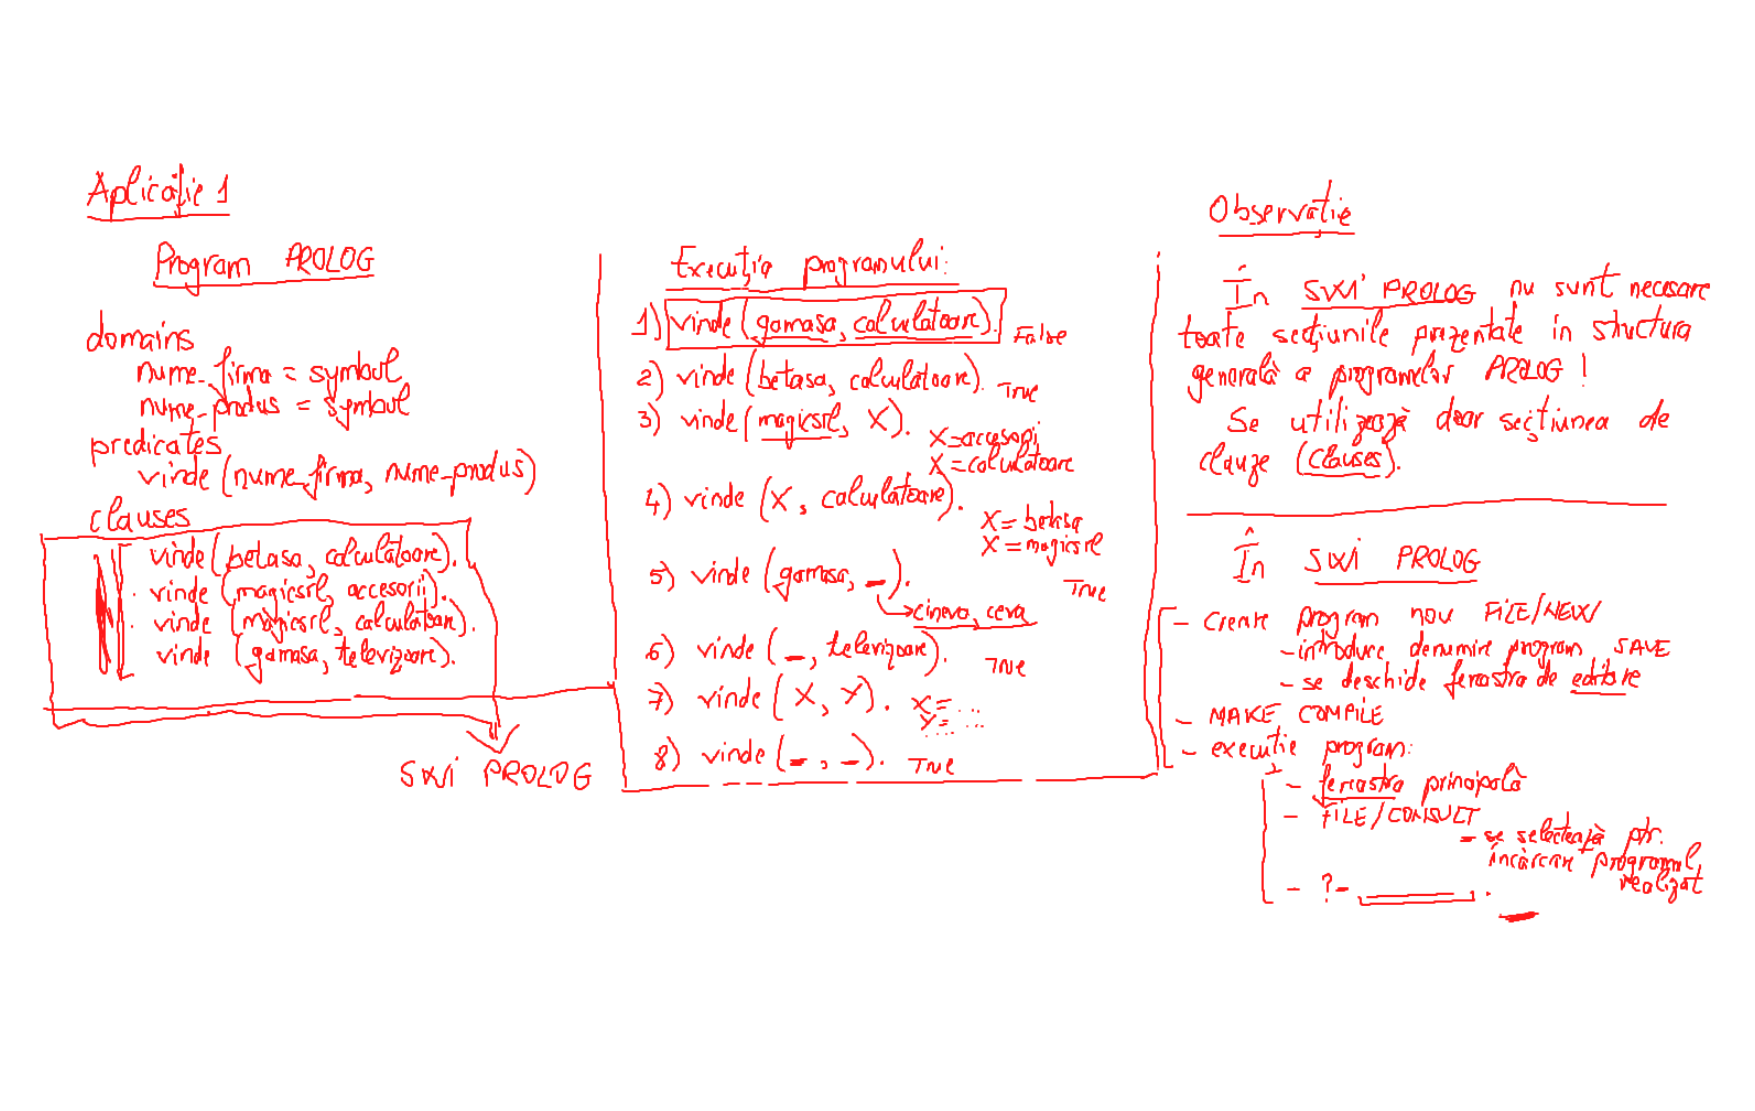 Aplicație 1
Program PROLOG
domains
nume_firma = symbol
nume_produs = symbol
predicates
vinde (nume_firma, nume_produs)
clauses
vinde (betasa, calculatoare).
vinde (magicsrl, accesorii).
vinde (magicsrl, calculatoare).
vinde (gamasa, televizoare).
SWI PROLOG
Execuția programului:
1) vinde (gamasa, calculatoare). False
2) vinde (betasa, calculatoare). True
3) vinde (magicsrl, X).
X=accesorii
X=calculatoare
4) vinde (X, calculatoare).
X= betasa
X=magicsrl
5) vinde (gamasa, _). True
cineva, ceva
6) vinde (_, televizoare). True
7) vinde (X, Y). X=...
Y=...
8) vinde (_, _). True
Observație
În SWI PROLOG nu sunt necesare
toate secțiunile prezentate in structura
generală a programelor PROLOG!
Se utilizează doar secțiunea de
clauze (clauses).
În SWI PROLOG
- Creare program nou FILE/NEW
- introduce denumire program SAVE
- se deschide fereastra de editare
- MAKE COMPILE
- execuție program:
- fereastra principală
- FILE/CONSULT
- se selectează ptr.
încărcare programul
realizat
- ?- ________ .